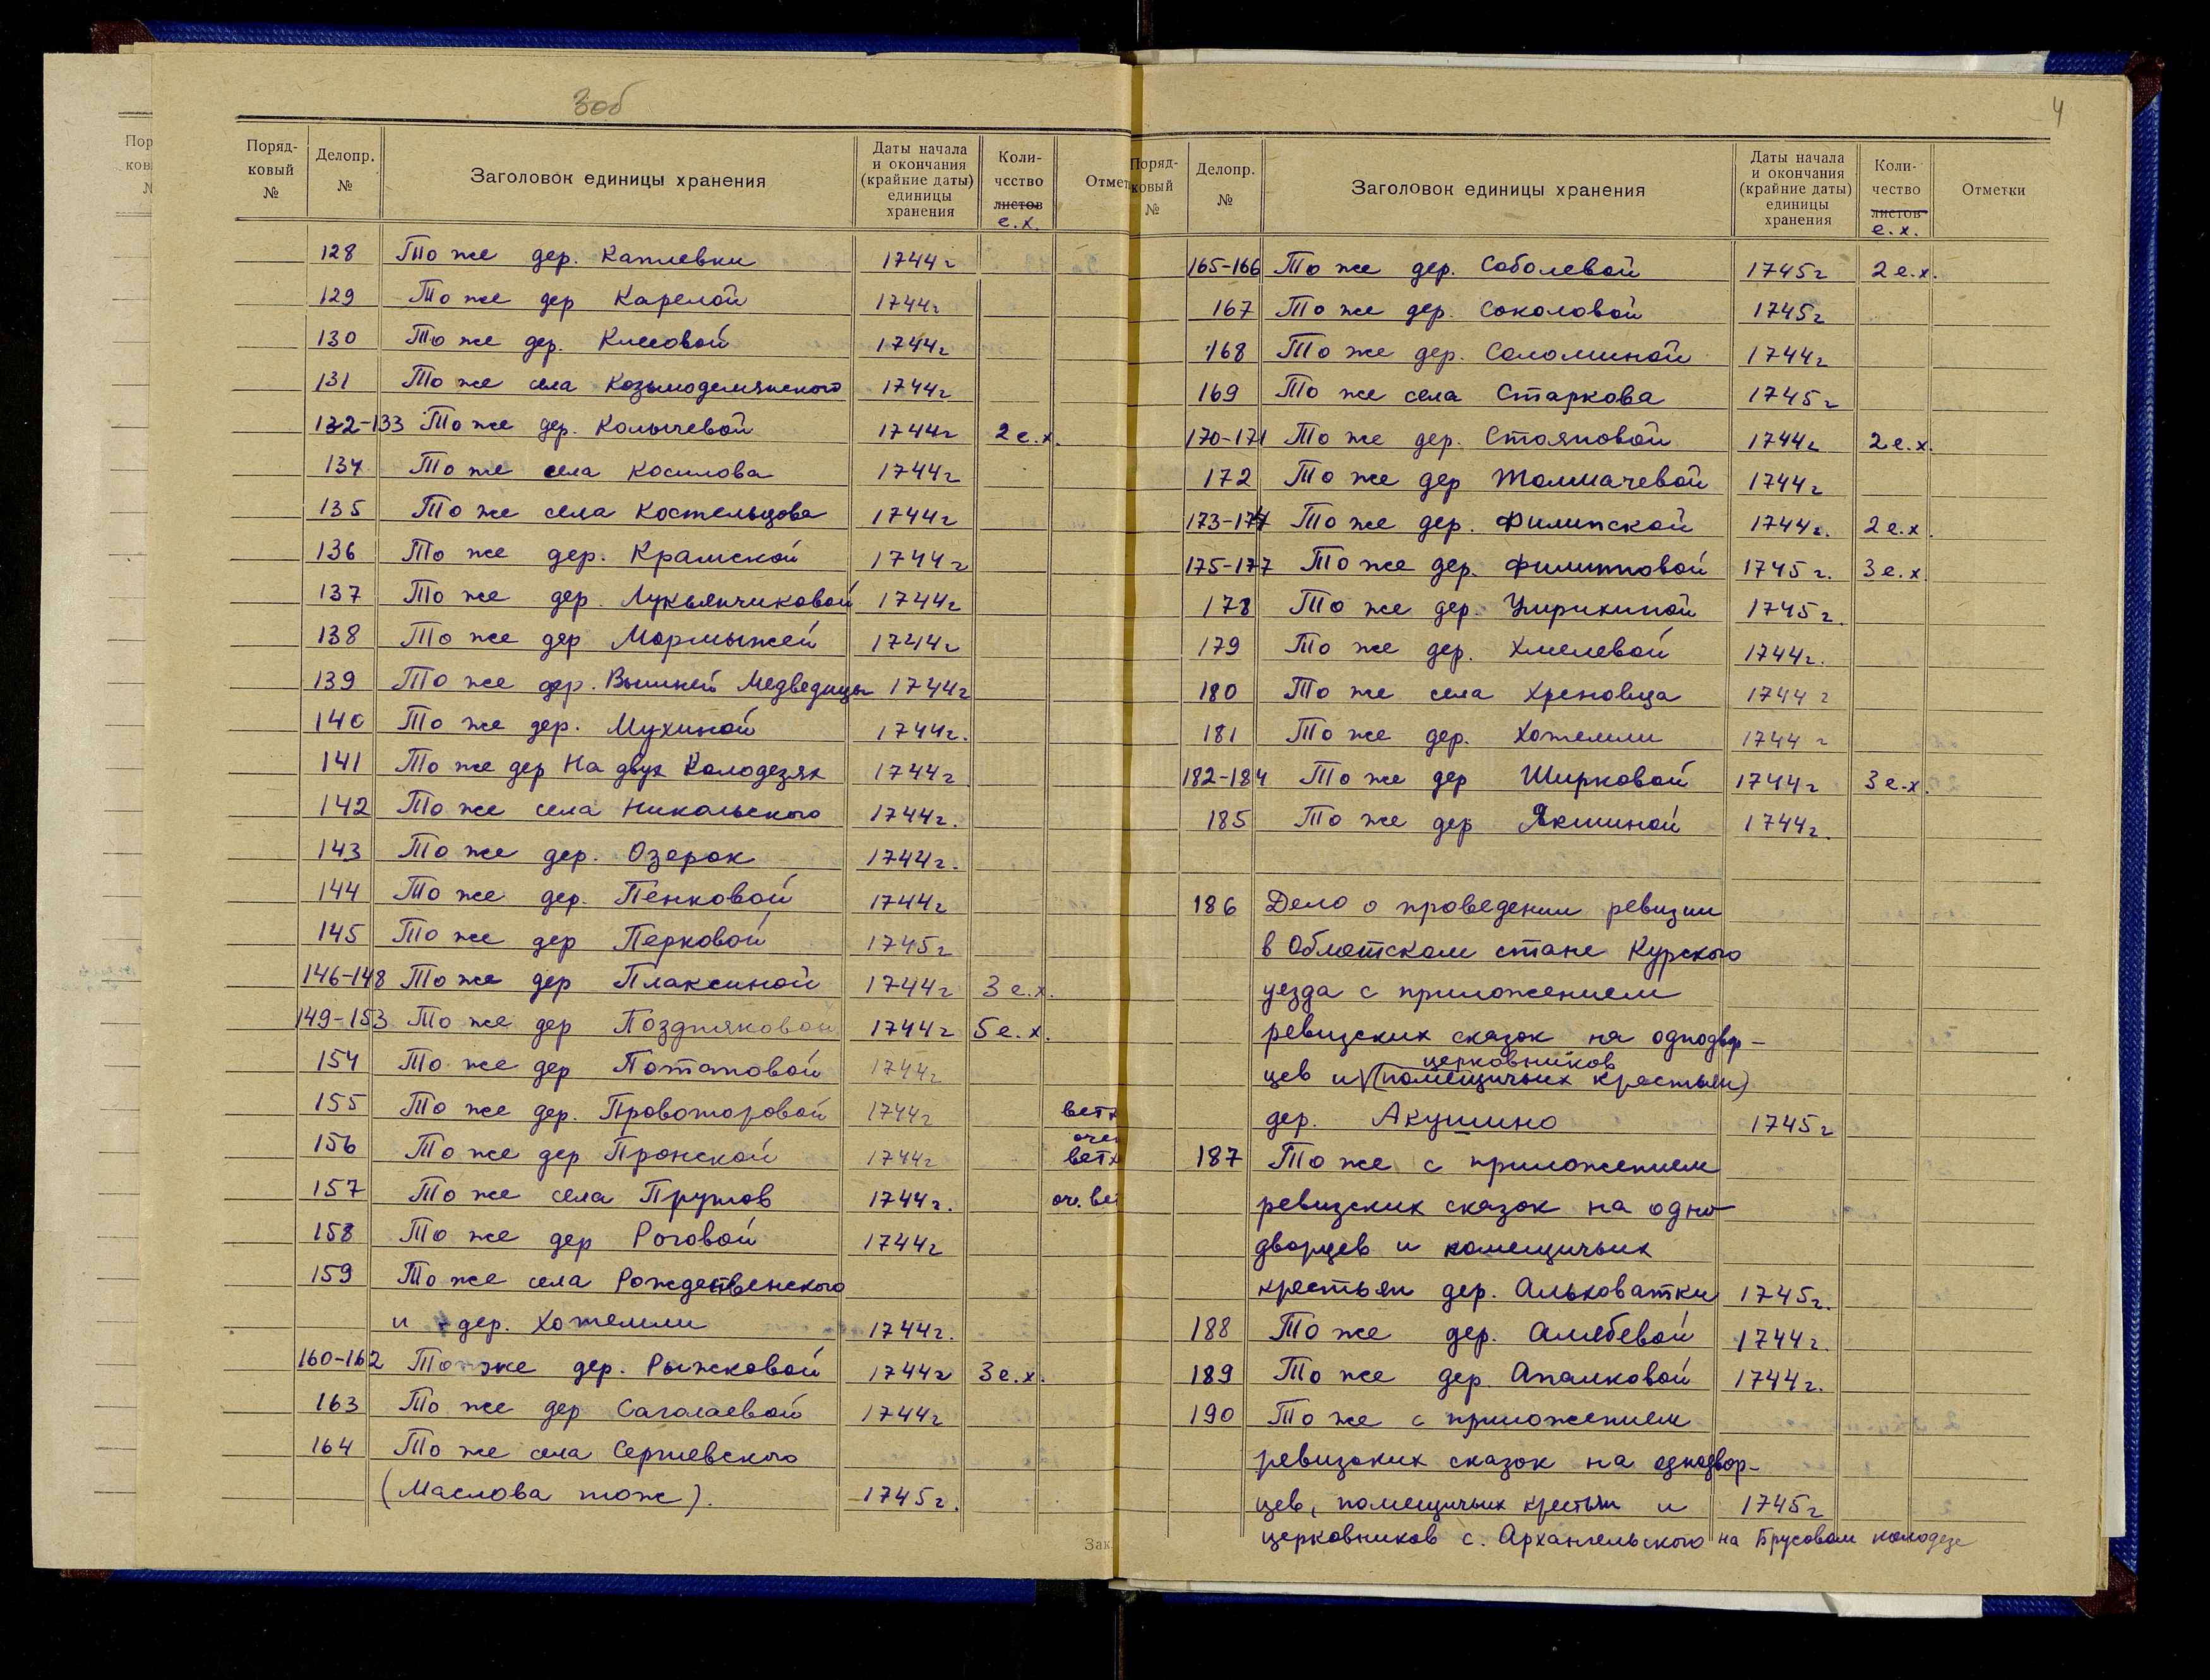 3об
Поряд-ковый № Делопр. № Заголовок единицы хранения Даты начала и окончания (крайние даты) единицы хранения Коли-чество листов е.х. Отмет
128 То же дер. Каплевки 1744г
129 То же дер Карелой 1744г
130 То же дер. Клесовой 1744г
131 То же села Козьмодемянского 1744г
132-133 То же дер. Колычевой 1744г 2 е.х.
134 То же села Косилова 1744г
135 То же села Костельцова 1744г
136 То же дер. Крамской 1744г
137 То же дер. Лукьянчиковой 1744г
138 То же дер Мормыжей 1744г
139 То же дер. Вышней Медведицы 1744г
140 То же дер. Мухиной 1744г.
141 То же дер На двух Колодезях 1744г
142 То же села Никольского 1744г.
143 То же дер. Озерок 1744г.
144 То же дер. Пенковой 1744г
145 То же дер Перковой 1745г
146-148 То же дер Плаксиной 1744г 3 е.х.
149-153 То же дер Поздняковой 1744г 5 е.х.
154 То же дер Потаповой 1744г
155 То же дер. Провоторовой 1744г ветх
156 То же дер Пронской 1744г очен ветх
157 То же села Прутов 1744г. оч. вет
158 То же дер Роговой 1744г
159 То же села Рождественского
и дер. Хотемли 1744г.
160-162 То же дер. Рыжковой 1744г 3 е.х.
163 То же дер Саголаевой 1744г
164 То же села Сергиевского
(Маслова тож). 1745г.
Зак.
4
Поряд-ковый № Делопр. № Заголовок единицы хранения Даты начала и окончания (крайние даты) единицы хранения Коли-чество листов е.х. Отметки
165-166 То же дер. Соболевой 1745г 2 е.х.
167 То же дер. Соколовой 1745г
168 То же дер. Соломиной 1744г
169 То же села Старкова 1745г
170-171 То же дер. Стояновой 1744г 2 е.х.
172 То же дер Толмачевой 1744г
173-174 То же дер. Филипской 1744г. 2 е.х.
175-177 То же дер. Филипповой 1745г. 3 е.х.
178 То же дер. Умрихиной 1745г.
179 То же дер. Хмелевой 1744г.
180 То же села Хреновца 1744г
181 То же дер. Хотемли 1744г
182-184 То же дер Ширковой 1744г 3 е.х.
185 То же дер Якшиной 1744г.
186 Дело о проведении ревизии
в Обмотском стане Курского
уезда с приложением
ревизских сказок на однодвор-
церковников
цев и (помещичьих крестьян)
дер. Акушино 1745г
187 То же с приложением
ревизских сказок на одно-
дворцев и помещичьих
крестьян дер. Альховатки 1745г.
188 То же дер. Алябевой 1744г.
189 То же дер. Апалковой 1744г.
190 То же с приложением
ревизских сказок на однодвор-
цев, помещичьих крестьян и 1745г
церковников с. Архангельского на Брусовом колодезе